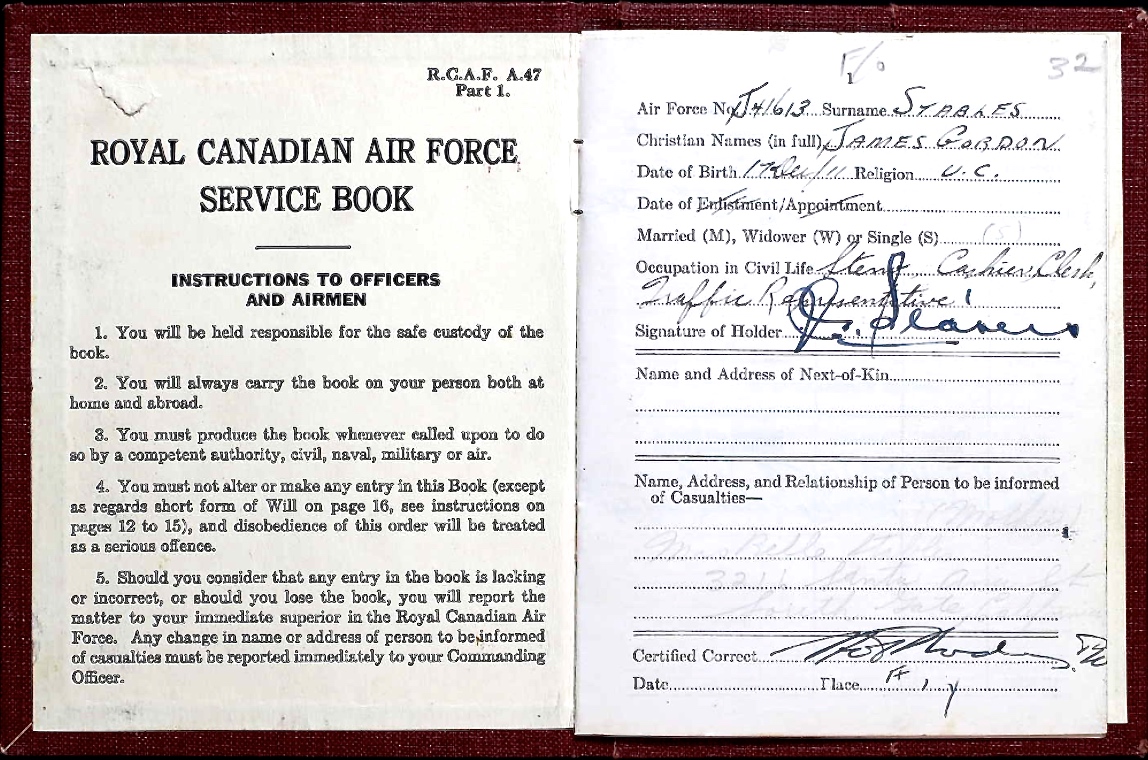 R.C.A.F. A.47
Part 1.
ROYAL CANADIAN AIR FORCE
SERVICE BOOK
INSTRUCTIONS TO OFFICERS
AND AIRMEN
1. You will be held responsible for the safe custody of the
book.
2. You will always carry the book on your person both at
home and abroad.
3. You must produce the book whenever called upon to do
so by a competent authority, civil, naval, military or air.
4. You must not alter or make any entry in this Book (except
as regards short form of Will on page 16, see instructions on
pages 12 to 15), and disobedience of this order will be treated
as a serious offence.
5. Should you consider that any entry in the book is lacking
or incorrect, or should you lose the book, you will report the
matter to your immediate superior in the Royal Canadian Air
Force. Any change in name or address of person to be informed
of casualties must be reported immediately to your Commanding
Officer.
F/O
32
Air Force No. J41613 Surname STABLES
Christian Names (in full) JAMES GORDON
Date of Birth 17 Dec/11 Religion U.C.
Date of Enlistment/Appointment
Married (M), Widower (W) or Single (S) (S)
Occupation in Civil Life Steno Cashier, Clerk,
Traffic Representative
Signature of Holder
Name and Address of Next-of-Kin
Name, Address, and Relationship of Person to be informed
of Casualties—
(Mother)
Bella
Santa Ana St
South Gate
Certified Correct
Date Place